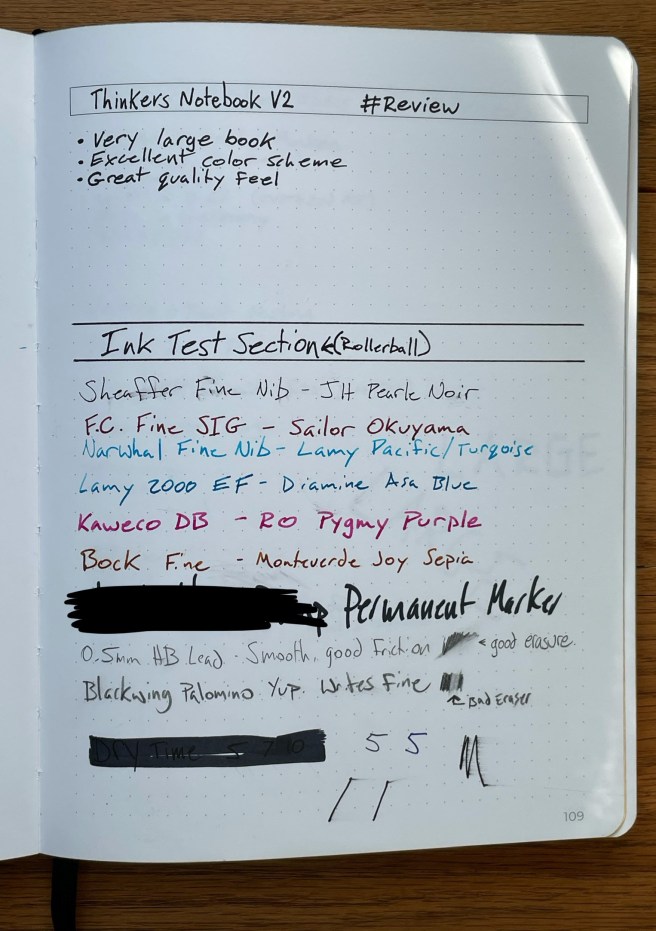 Thinkers Notebook V2 #Review
• Very large book
• Excellent color scheme
• Great quality feel
Ink Test Section (Rollerball)
Sheaffer Fine Nib - JH Pearle Noir
F.C. Fine SIG - Sailor Okuyama
Narwhal Fine Nib - Lamy Pacific/Turqoise
Lamy 2000 EF - Diamine Asa Blue
Kaweco DB - RO Pygmy Purple
Bock Fine - Monteverde Joy Sepia
Permanent Marker
0.5mm HB Lead - Smooth, good friction < good erasure.
Blackwing Palomino Yup. Writes Fine
Bad Eraser
Dry Time 5 7 10 5 5
109